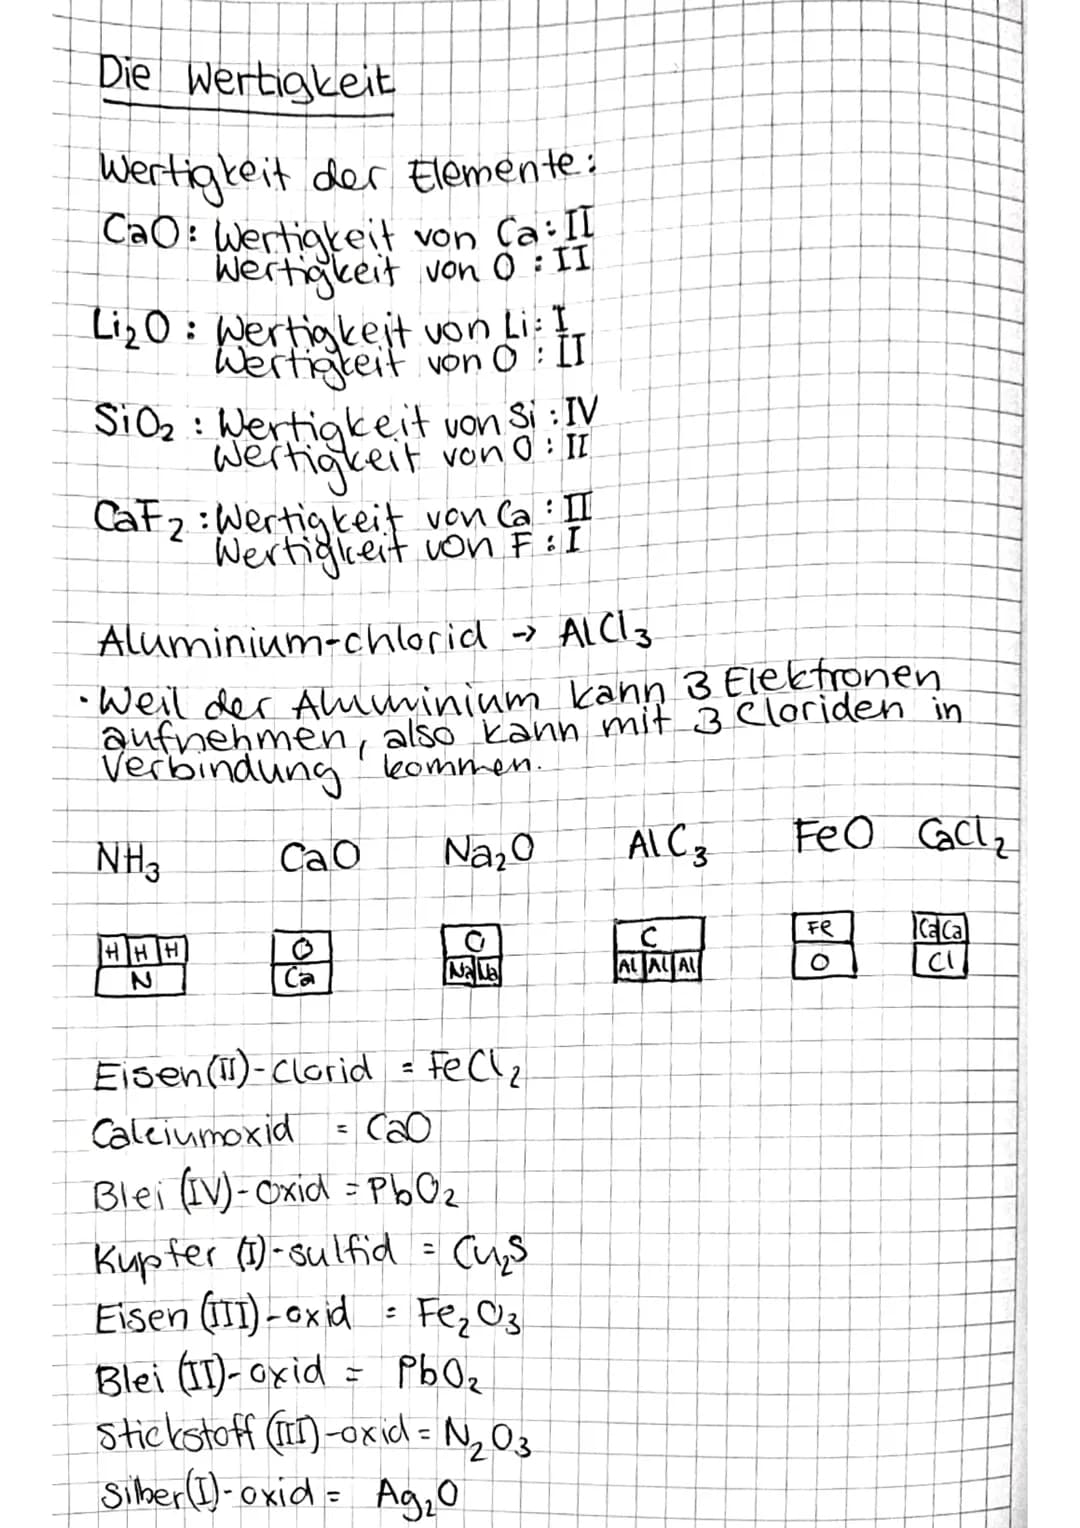 Die Wertigkeit
Wertigkeit der Elemente:
CaO: Wertigkeit von Ca: II
Wertigkeit von O : II
Li₂O : Wertigkeit von Li: I
Wertigkeit von O : II
SiO₂ : Wertigkeit von Si : IV
Wertigkeit von O : II
CaF₂ : Wertigkeit von Ca : II
Wertigkeit von F : I
Aluminium-chlorid → AlCl₃
· Weil der Aluminium kann 3 Elektronen
aufnehmen, also kann mit 3 Cloriden in
Verbindung kommen.
NH₃ CaO Na₂O AlC₃ FeO CaCl₂
H H H O O C Fe Ca Ca
N Ca Na Na Al Al Al O Cl
Eisen(II)-Clorid = FeCl₂
Calciumoxid = CaO
Blei (IV)-oxid = PbO₂
Kupfer (I)-sulfid = Cu₂S
Eisen (III)-oxid = Fe₂O₃
Blei (II)-oxid = PbO₂
Stickstoff (III)-oxid = N₂O₃
Silber(I)-oxid = Ag₂O